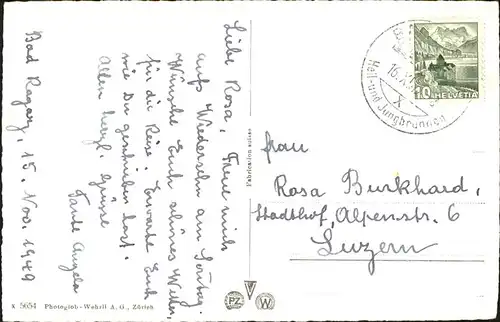 Bad Ragaz, 15. Nov. 1949
Liebe Rosa, Freue mich
aufs Wiedersehn am Sonntag.
Wünsche Euch schönes Wetter
für die Reise. Erwarte Euch
wie Du geschrieben hast.
Allen herzl. Grüsse
Tante Angela
Frau
Rosa Burkhard,
Stadthof, Alpenstr. 6
Luzern
Heil- und Jungbrunnen
16.
X
10 HELVETIA
Fabrication suisse
K 5654 Photoglob-Wehrli A. G., Zürich
PZ
W